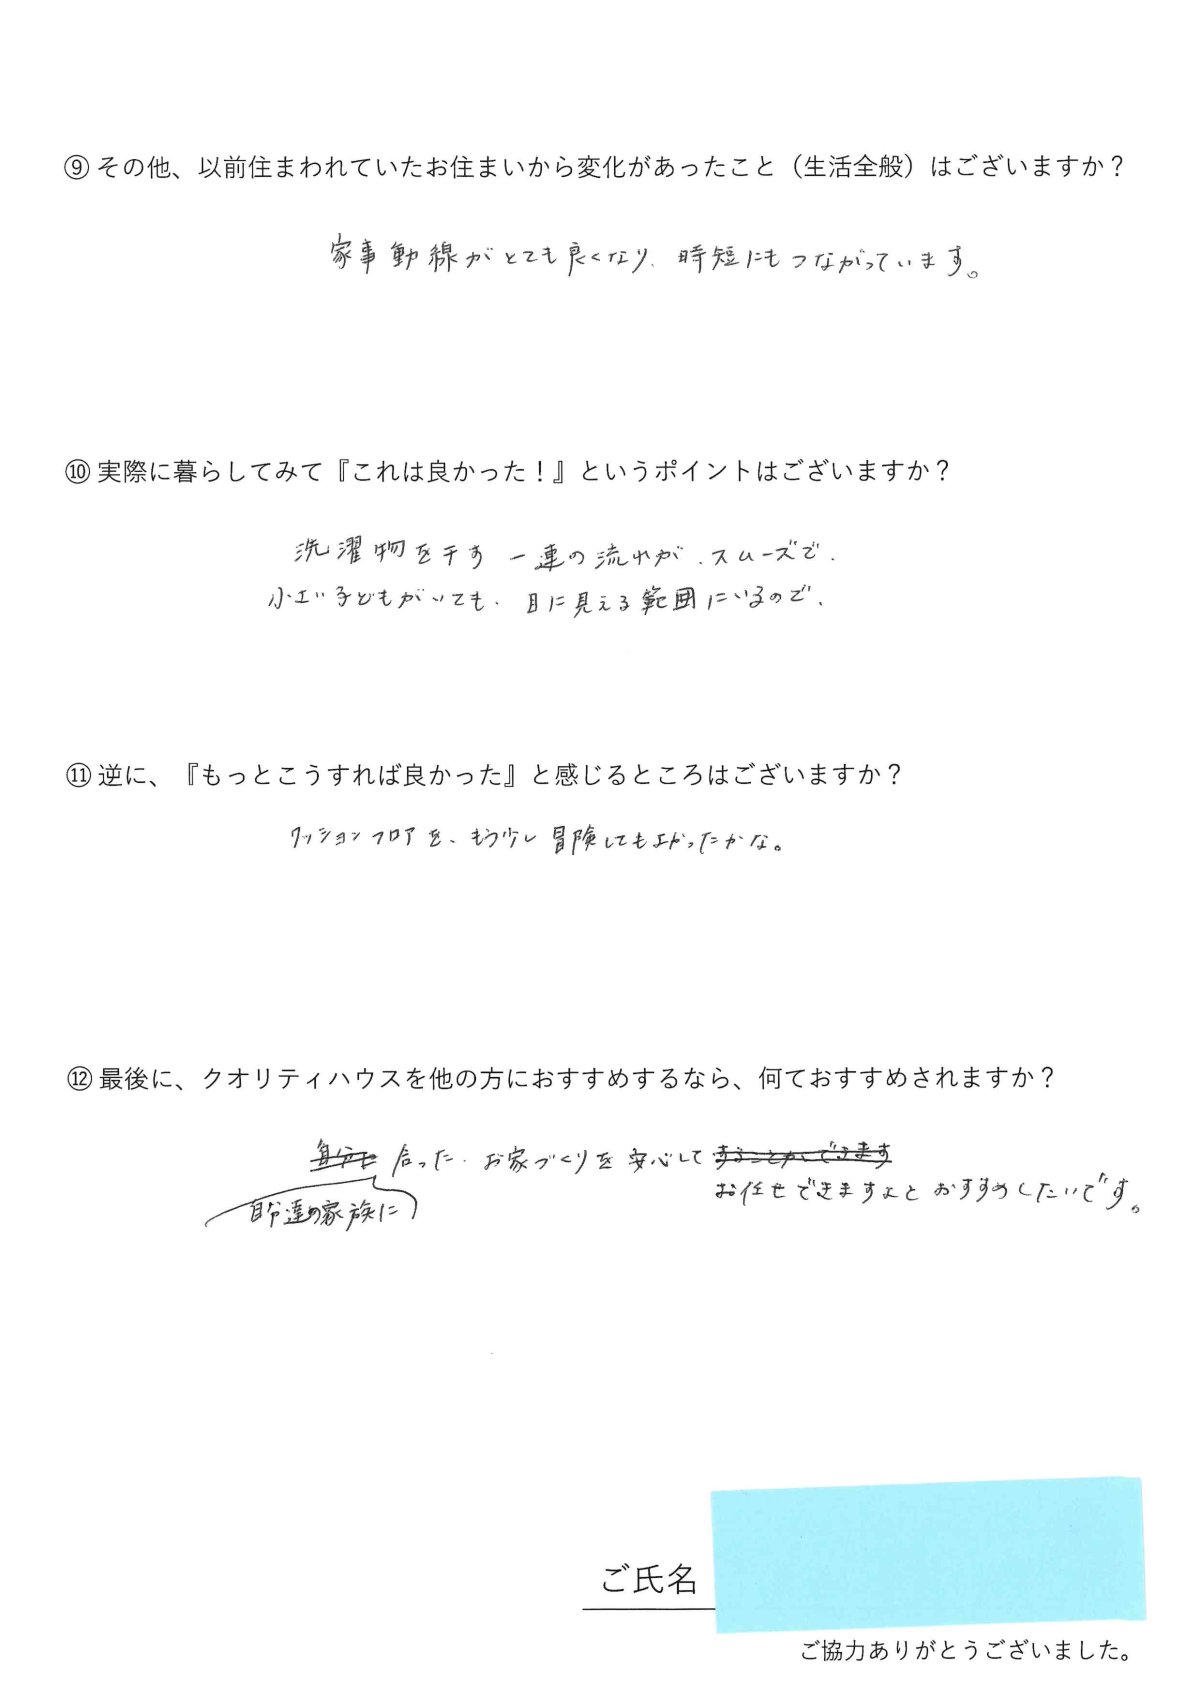 ⑨ その他、以前住まわれていたお住まいから変化があったこと（生活全般）はございますか？
家事動線がとても良くなり、時短にもつながっています。
⑩ 実際に暮らしてみて『これは良かった！』というポイントはございますか？
洗濯物を干す一連の流れが、スムーズで、
小さい子どもがいても、目に見える範囲にいるので、
⑪ 逆に、『もっとこうすれば良かった』と感じるところはございますか？
クッションフロアを、もう少し冒険してもよかったかな。
⑫ 最後に、クオリティハウスを他の方におすすめするなら、何ておすすめされますか？
合った、お家づくりを安心して することができます
自分達の家族に
お任せできますよとおすすめしたいです。
ご氏名
ご協力ありがとうございました。